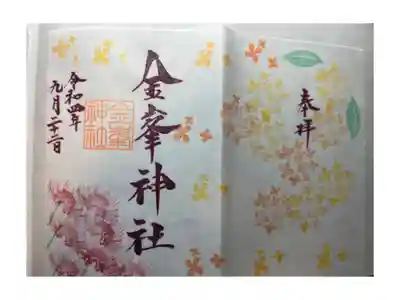 奉拝
金峯神社
金峯
神社
令和四年
九月